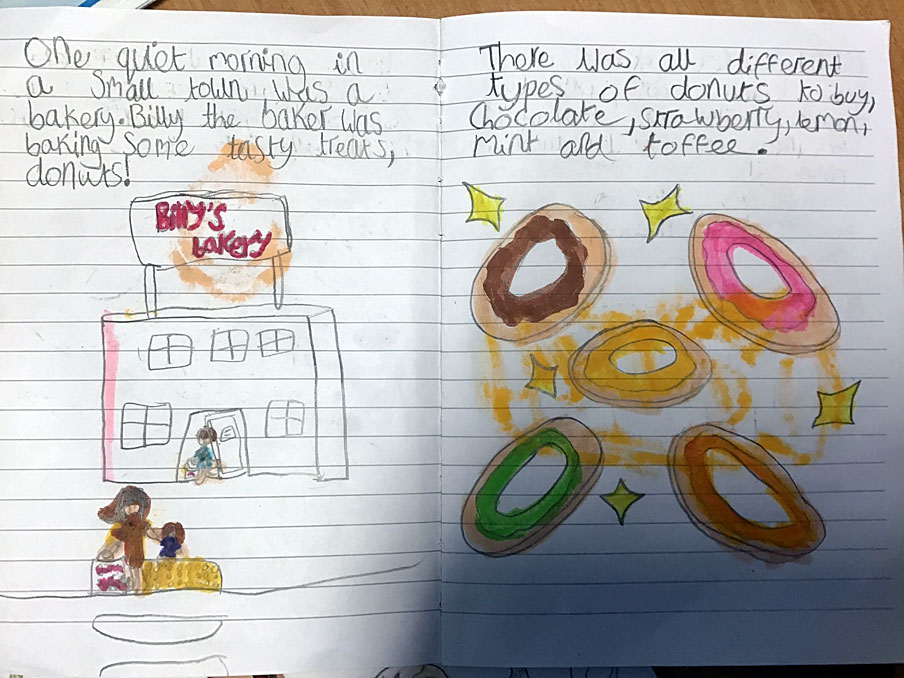 One quiet morning in
a small town was a
bakery. Billy the baker was
baking some tasty treats,
donuts!
Billy's
bakery
There was all different
types of donuts to buy,
Chocolate, strawberry, lemon,
mint and toffee.